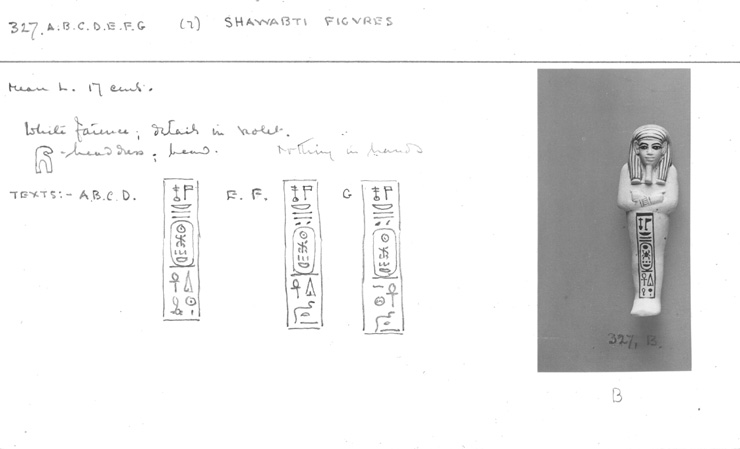 327. A.B.C.D.E.F.G (7) SHAWABTI FIGVRES
Mean h. 17 cent.
White faience; details in violet.
-headdress; beard. Nothing in hands
TEXTS:- A.B.C.D. E. F. G
327, B.
B